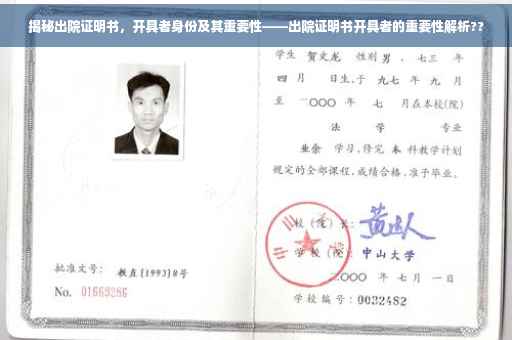 揭秘出院证明书，开具者身份及其重要性——出院证明书开具者的重要性解析??
学生 贺文龙 性别 男 ，七三 年
四 月 日生，于 九七 年 九 月
至 二〇〇〇 年 七 月在本校(院)
法 学 专业
业余 学习，修完 本 科教学计划
规定的全部课程，成绩合格，准予毕业。
校（院）长：
学 校（院） 中山大学
二〇〇〇 年 七 月 一 日
学校编号：0032482
批准文号： 教直[1993]8号
No. 01669286